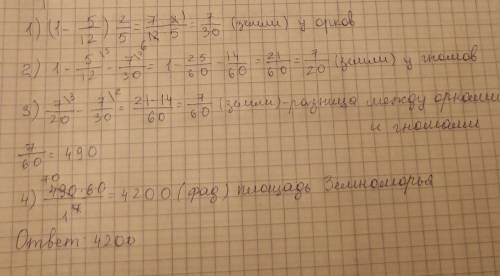 1) (1 - 5/12) 2/5 = 7/12 · 2/5 = 7/30 (земли) у орков
2) 1 - 5/12 - 7/30 = 1 - 25/60 - 14/60 = 21/60 = 7/20 (земли) у гномов
3) 7/20 - 7/30 = 21-14/60 = 7/60 (земли) - разница между орками
и гномами
7/60 = 490
4) 490·60/7 = 4200 (фад) площадь Земноморья
Ответ: 4200